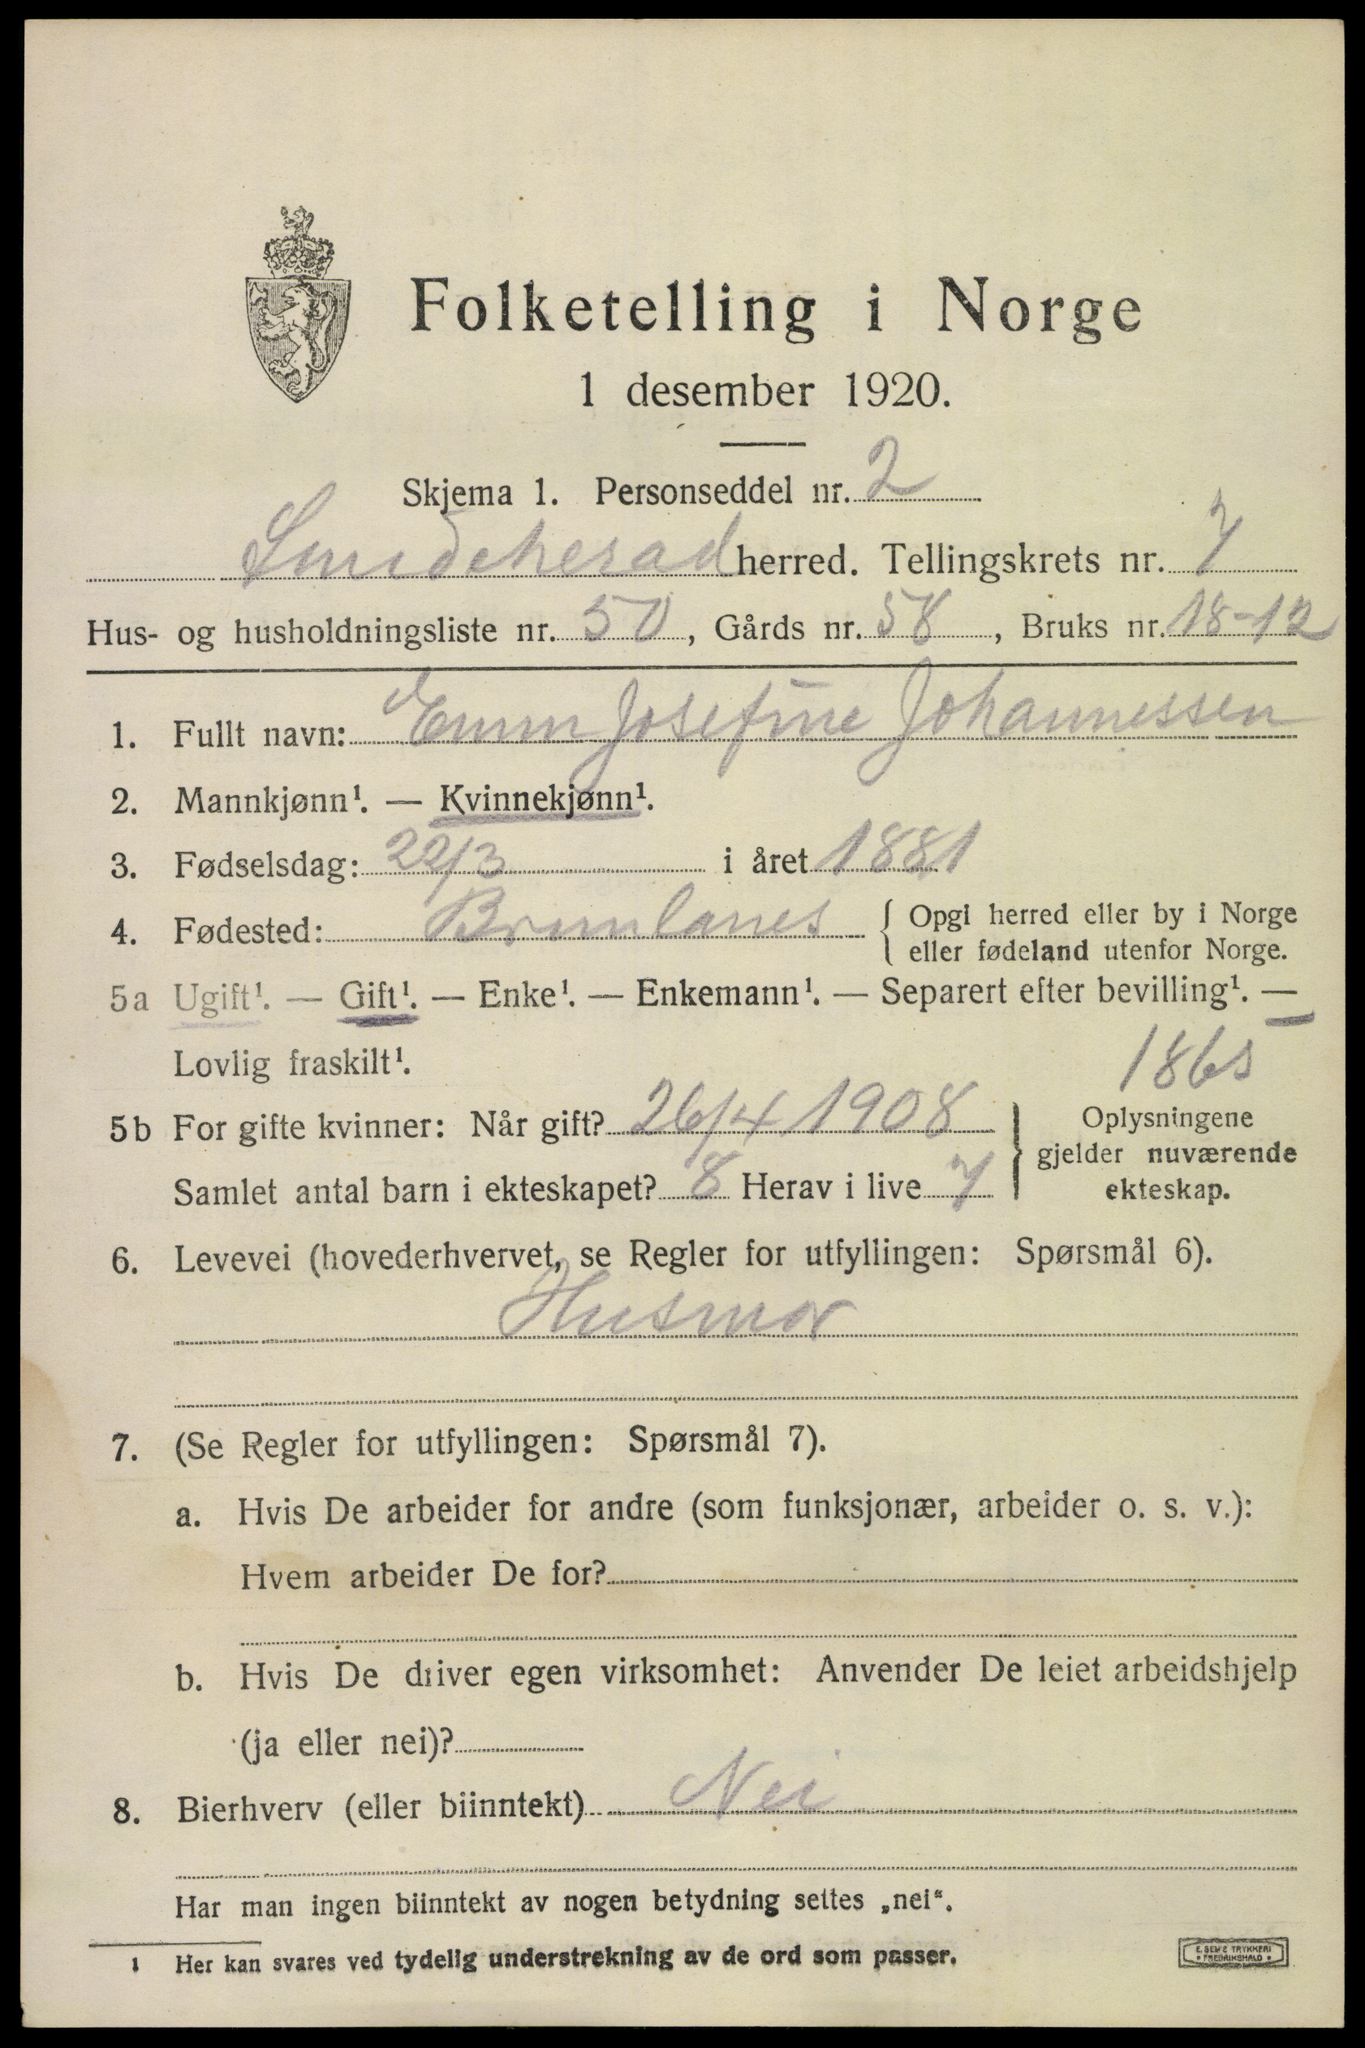 Folketelling i Norge
1 desember 1920.
Skjema 1. Personseddel nr. 2
herred. Tellingskrets nr. 7
Hus- og husholdningsliste nr. 50, Gårds nr. 58, Bruks nr. 18-12
1. Fullt navn: Emm Josefine Johannessen
2. Mannkjønn¹. — Kvinnekjønn¹.
3. Fødselsdag: 22/3 i året 1881
4. Fødested: Brunlanes { Opgi herred eller by i Norge
eller fødeland utenfor Norge.
5a Ugift¹. — Gift¹. — Enke¹. — Enkemann¹. — Separert efter bevilling¹. —
Lovlig fraskilt¹.
1865
5b For gifte kvinner: Når gift? 26/4 1908
Samlet antal barn i ekteskapet? 8 Herav i live 7
} Oplysningene
gjelder nuværende
ekteskap.
6. Levevei (hovederhvervet, se Regler for utfyllingen: Spørsmål 6).
Husmor
7. (Se Regler for utfyllingen: Spørsmål 7).
a. Hvis De arbeider for andre (som funksjonær, arbeider o. s. v.):
Hvem arbeider De for?
b. Hvis De driver egen virksomhet: Anvender De leiet arbeidshjelp
(ja eller nei)?
8. Bierhverv (eller biinntekt) Nei
Har man ingen biinntekt av nogen betydning settes „nei“.
1 Her kan svares ved tydelig understrekning av de ord som passer.
E. SEM'S TRYKKERI
• FREDRIKSHALD •